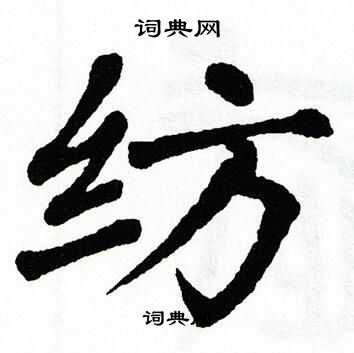 词典网
纺
词典